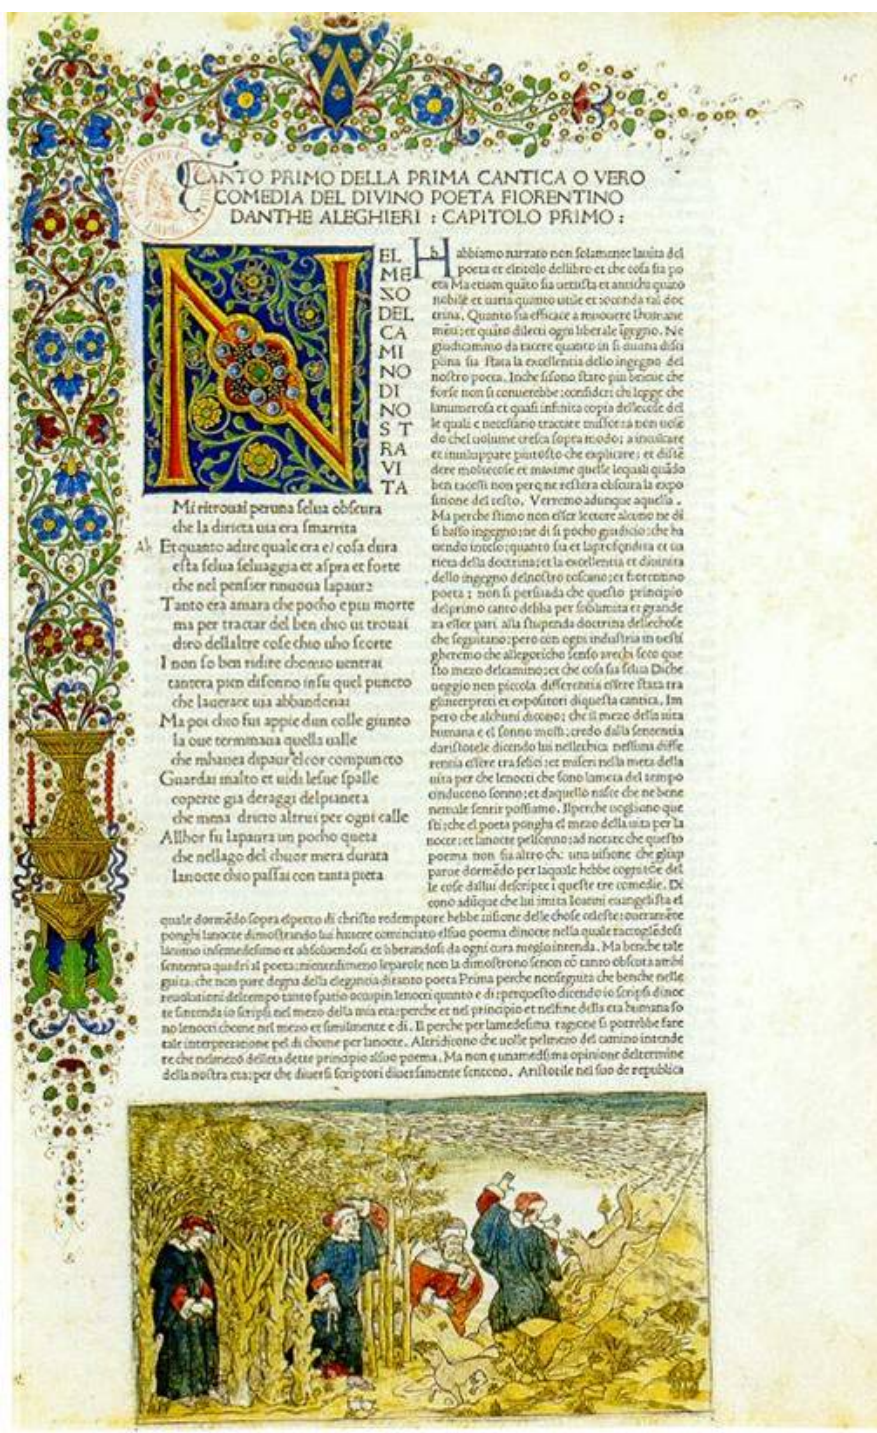 CANTO PRIMO DELLA PRIMA CANTICA O VERO
COMEDIA DEL DIVINO POETA FIORENTINO
DANTHE ALEGHIERI : CAPITOLO PRIMO :
N
EL
ME
ZO
DEL
CA
MI
NO
DI
NO
S T
RA
VI
TA
Mi ritrouai peruna selua obscura
che la diricta uia era smarrita
Ah Et quanto adire quale era e/ cosa dura
esta selua seluaggia et aspra et forte
che nel pensier rinuoua lapaura
Tanto era amara che pocho e piu morte
ma per tractar del ben chio ui trouai
diro dellaltre cose chio uho scorte
I non so ben ridire chomio uentrai
tantera pien disonno insu quel puncto
che lauerace uia abbandonai
Ma poi chio fui appie dun colle giunto
la oue terminaua quella ualle
che mhauea dipaura el cor compuncto
Guardai inalto et uidi lesue spalle
coperte gia deraggi delpianeta
che mena dricto altrui per ogni calle
Allhor fu lapaura un pocho queta
che nellago del chuor mera durata
lanocte chio passai con tanta pieta
Habbiamo narrato non solamente lauita del
poeta et eltitolo dellibro et che cosa sia po
eta Ma etiam quāto sia uetusta et anticha quāto
nobile et uaria quanto utile et ioconda tal doc
trina. Quanto sia efficace a muouere lhumane
mēti: et quāto dilecti ogni liberale īgegno. Ne
giudicammo da tacere quanto in si diuina disci
plina sia stata la excellentia dello ingegno del
nostro poeta. Inche sisono stato piu brieue che
forse non si conuerrebbe: consideri chi legge che
lanumerosa et quasi infinita copia dellecose del
le quali e necessario tractare misforza non uolē
do chel uolume cresca sopra modo: a inculcare
et inuiluppare piutosto che explicare: et distē
dere moltecose et maxime quelle lequali quādo
ben tacessi non perq ne restera obscura la expo
sitione del testo. Verremo adunque aquella.
Ma perche stimo non esser lectore alcuno ne di
si basso ingegno: ne di si pocho giudicio: che ha
uendo inteso: quanto sia et laprofondita et ua
rieta della doctrina: et la excellentia et diuinita
dello ingegno delnostro toscano: et fiorentino
poeta: non si persuada che questo principio
delprimo canto debba per sublimita et grande
za esser pari alla stupenda doctrina dellechose
che seguitano: pero con ogni industria inuesti
gheremo che allegoricho senso arechi seco que
sto mezo delcamino: et che cosa sia selua Diche
ueggio non piccola differentia essere stata tra
glinterpreti et expositori diquesta cantica. Im
pero che alchuni dicono: che il mezo della uita
humana e el sonno mossi: credo dalla sententia
daristotele dicendo lui nellethica nessuna diffe
rentia essere tra felici: et miseri nella meta della
uita per che lenocti che sono lameta del tempo
cinducono sonno: et daquello nasce che ne bene
nemale sentir possiamo. Ilperche uogliono que
sti: che el poeta pongha el mezo della uita per la
nocte: et lanocte pelsonno: ad notare che questo
poema non sia altro che una uisione che gliap
parue dormēdo per laquale hebbe cognitiōe del
le cose dallui descripte i queste tre comedie. Di
cono adūque che lui imita Ioanni euangelista el
quale dormēdo sopra elpecto di christo redemptore hebbe uisione delle chose celeste: oueramēte
ponghi lanocte dimostrando lui hauere cominciato elsuo poema dinocte nella quale raccogliēdosi
lanimo insemedesimo et absoluendosi et liberandosi da ogni cura meglio intenda. Ma benche tale
sententia quadri al poeta: nientedimeno leparole non la dimostrono senon cō tanto obscura ambi
guita: che non pare degna della elegantia ditanto poeta Prima perche nonseguita che benche nelle
reuolutioni deltempo tanto spatio occupin lenocti quanto e di: perquesto dicendo io scripsi dinoc
te sintenda io scripsi nel mezo della mia eta: perche et nel principio et nelfine della eta humana so
no lenocti chome nel mezo et similmente e di. Il perche per lamedesima ragione si potrebbe fare
tale interpretatione pel di chome per lanocte. Altri dicono che uolle pelmezo del camino intende
re che nelmezo delleta dette principio alsuo poema. Ma non e unamedesima opinione deltermine
della nostra eta: per che diuersi scriptori diuersamente sentono. Aristotile nel suo de republica